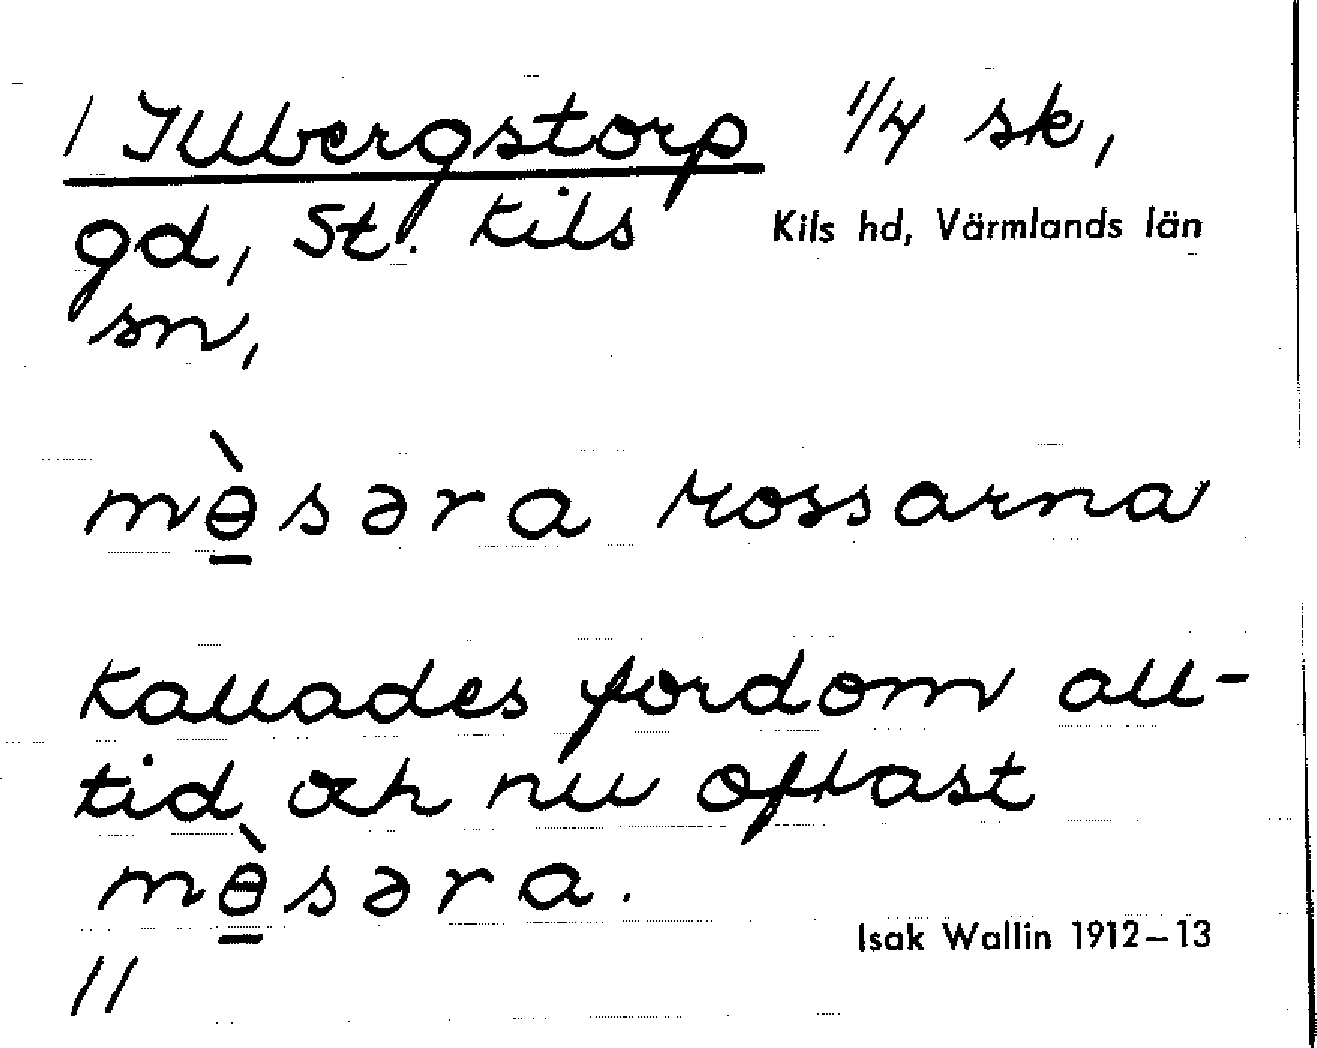 / Illbergstorp 1/4 sk,
gd, St. Kils Kils hd, Värmlands län
sn,
mɵ̀səra rossarna
Kallades fordom all-
tid och nu oftast
mɵ̀səra.
Isak Wallin 1912–13
//